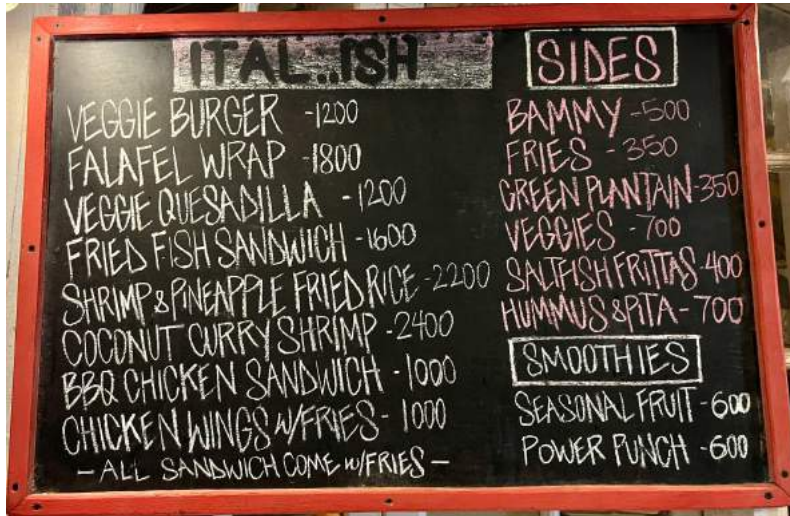 ITAL..ISH
VEGGIE BURGER -1200
FALAFEL WRAP -1800
VEGGIE QUESADILLA -1200
FRIED FISH SANDWICH -1600
SHRIMP & PINEAPPLE FRIED RICE -2200
COCONUT CURRY SHRIMP -2400
BBQ CHICKEN SANDWICH -1000
CHICKEN WINGS W/FRIES- 1000
- ALL SANDWICH COME W/FRIES -
SIDES
BAMMY -500
FRIES -350
GREEN PLANTAIN-350
VEGGIES -700
SALTFISH FRITTAS-400
HUMMUS & PITA- 700
SMOOTHIES
SEASONAL FRUIT -600
POWER PUNCH -600